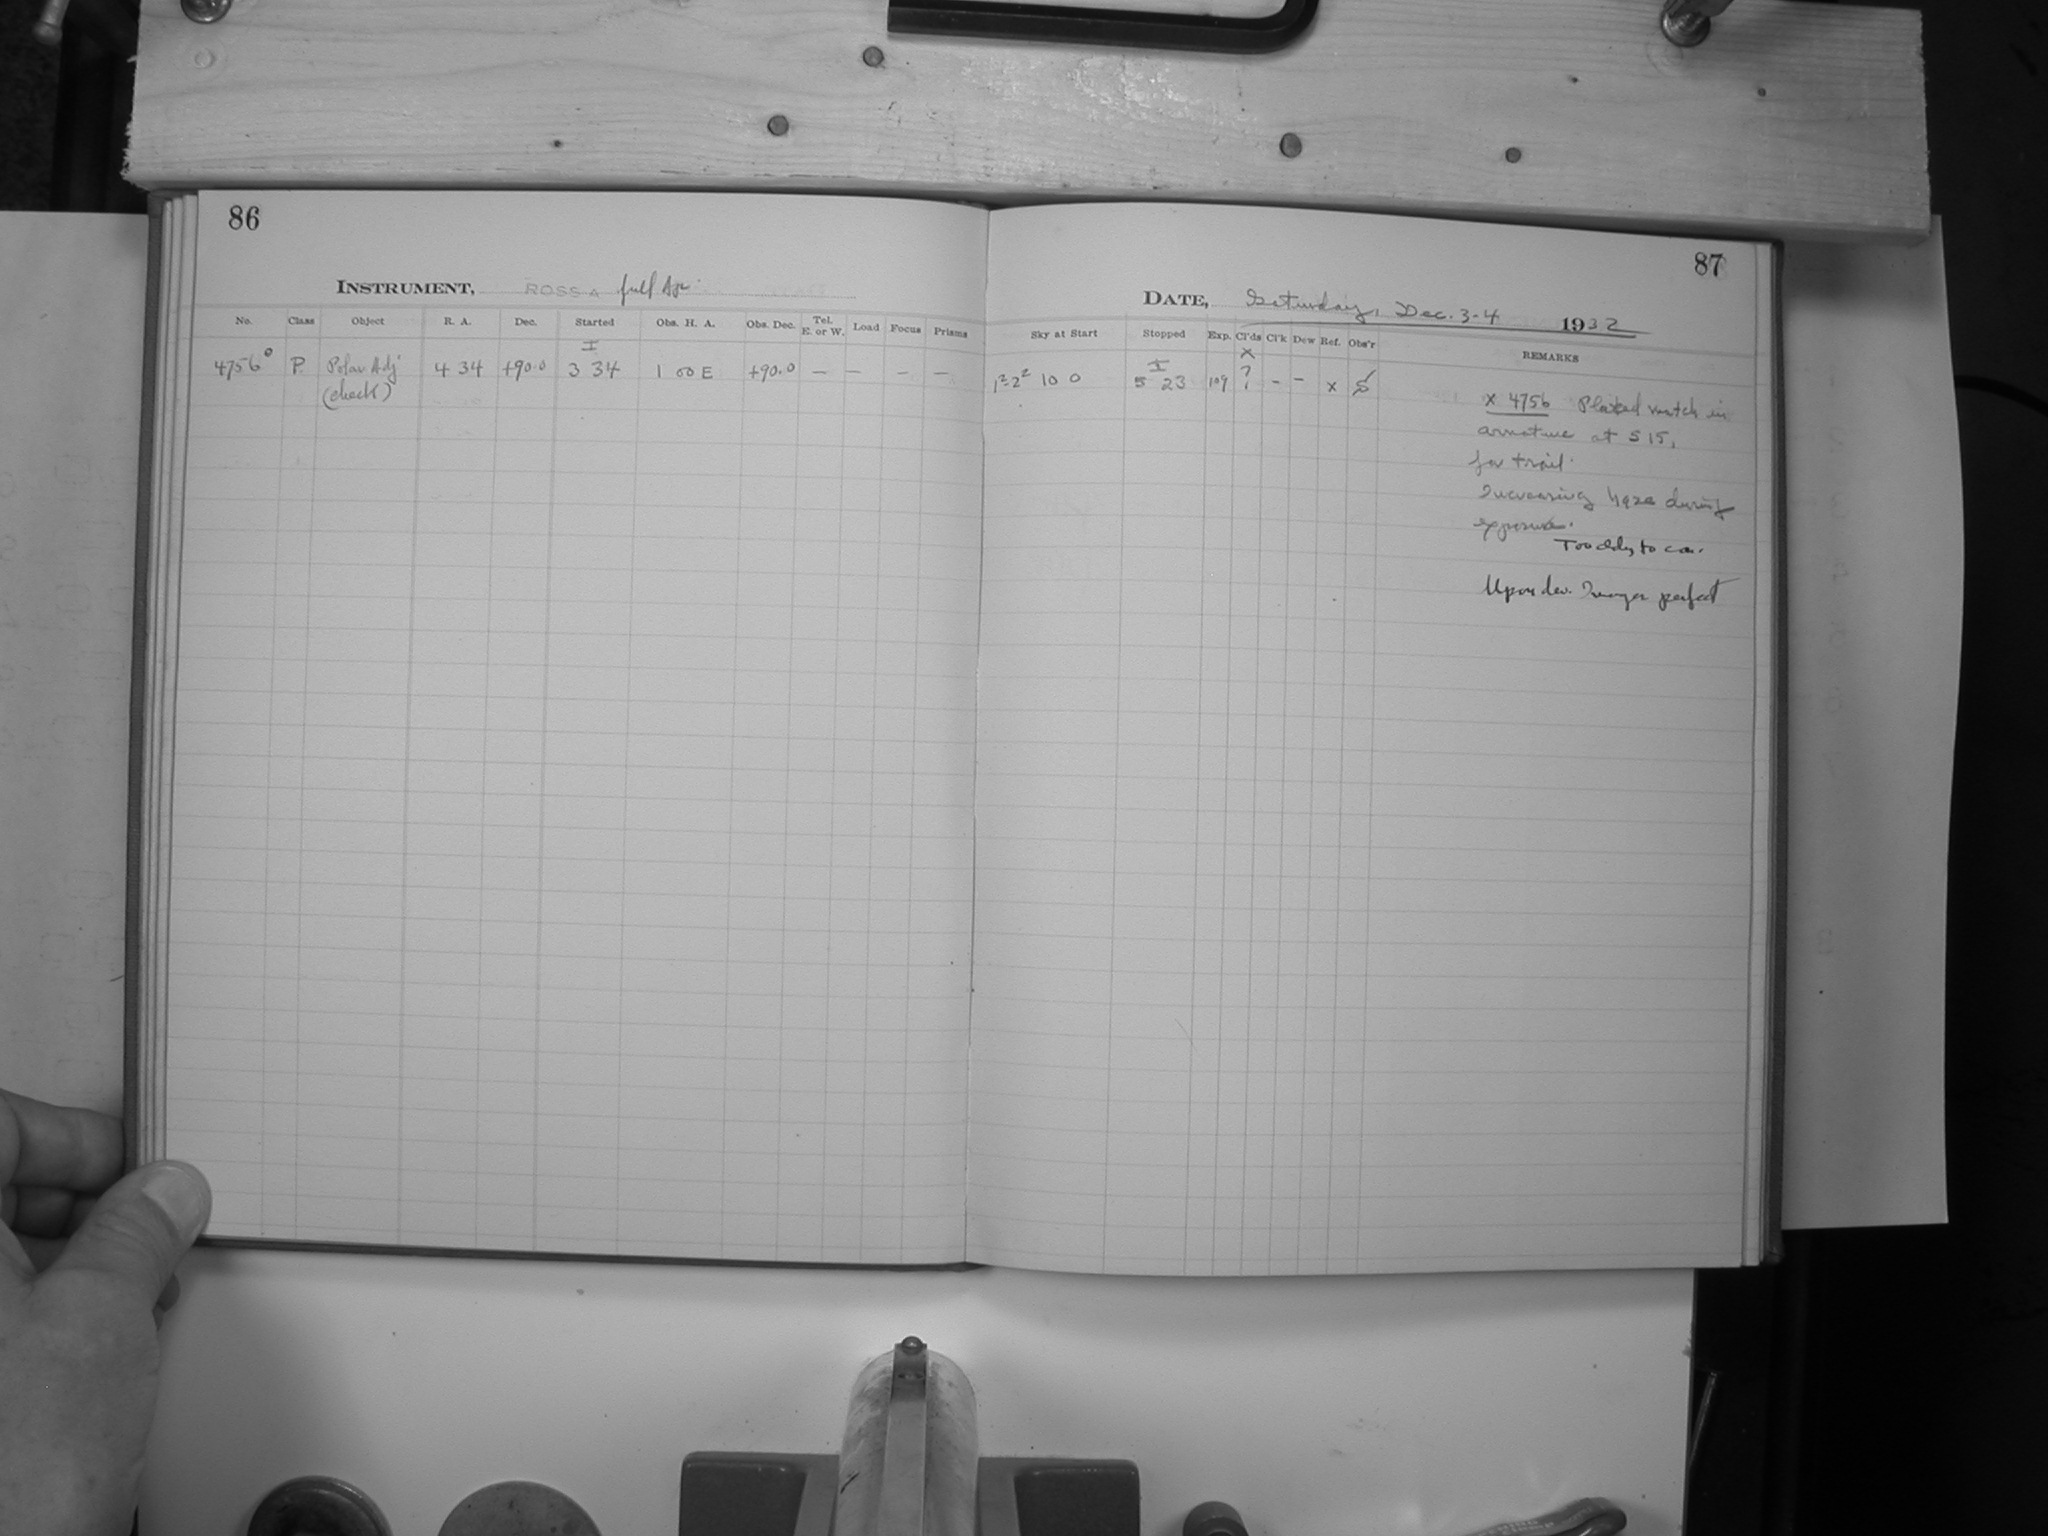 86
INSTRUMENT, ROSS A full Apr.
No. Class Object R. A. Dec. Started Obs. H. A. Obs. Dec. Tel. E. or W. Load Focus Prisms
I
4756° P. Polar Adj 4 34 +90.0 3 34 1 00 E +90.0 — — — —
(check)
87
DATE, Saturday, Dec. 3-4 1932
Sky at Start Stopped Exp. Cl'ds Cl'k Dew Ref. Obs'r REMARKS
I x
10 0 5 23 109 ? - - x
x 4756 Placed watch in
armature at 5 15,
for trail.
Increasing haze during
exposure.
Too cldy to con.
Upon dev. Images perfect